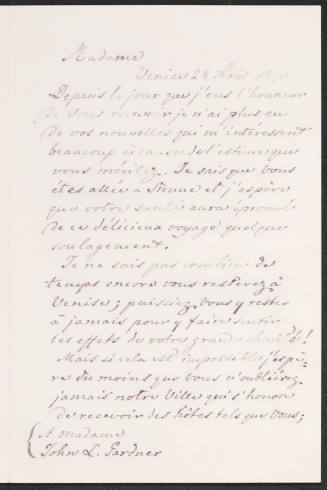 Madame
Venise 28 Août 1890
Depuis le jour que j'eus l'honneur
de vous recevoir je n'ai plus eu
de vos nouvelles qui m'intéressent
beaucoup à cause de l'estime que
vous méritez. Je sais que vous
êtes allée à Sienne et j'espère
que votre santé aura éprouvé
de ce délicieux voyage quelque
soulagement.
Je ne sais pas combien de
temps encore vous resterez à
Venise; puissiez vous y rester
à jamais pour y faire sentir
les effets de votre grande charité!
Mais si cela est impossible j'espè-
re du moins que vous n'oublierez
jamais notre Ville qui s'honore
de recevoir des hôtes tels que vous;
A Madame
John L. Gardner